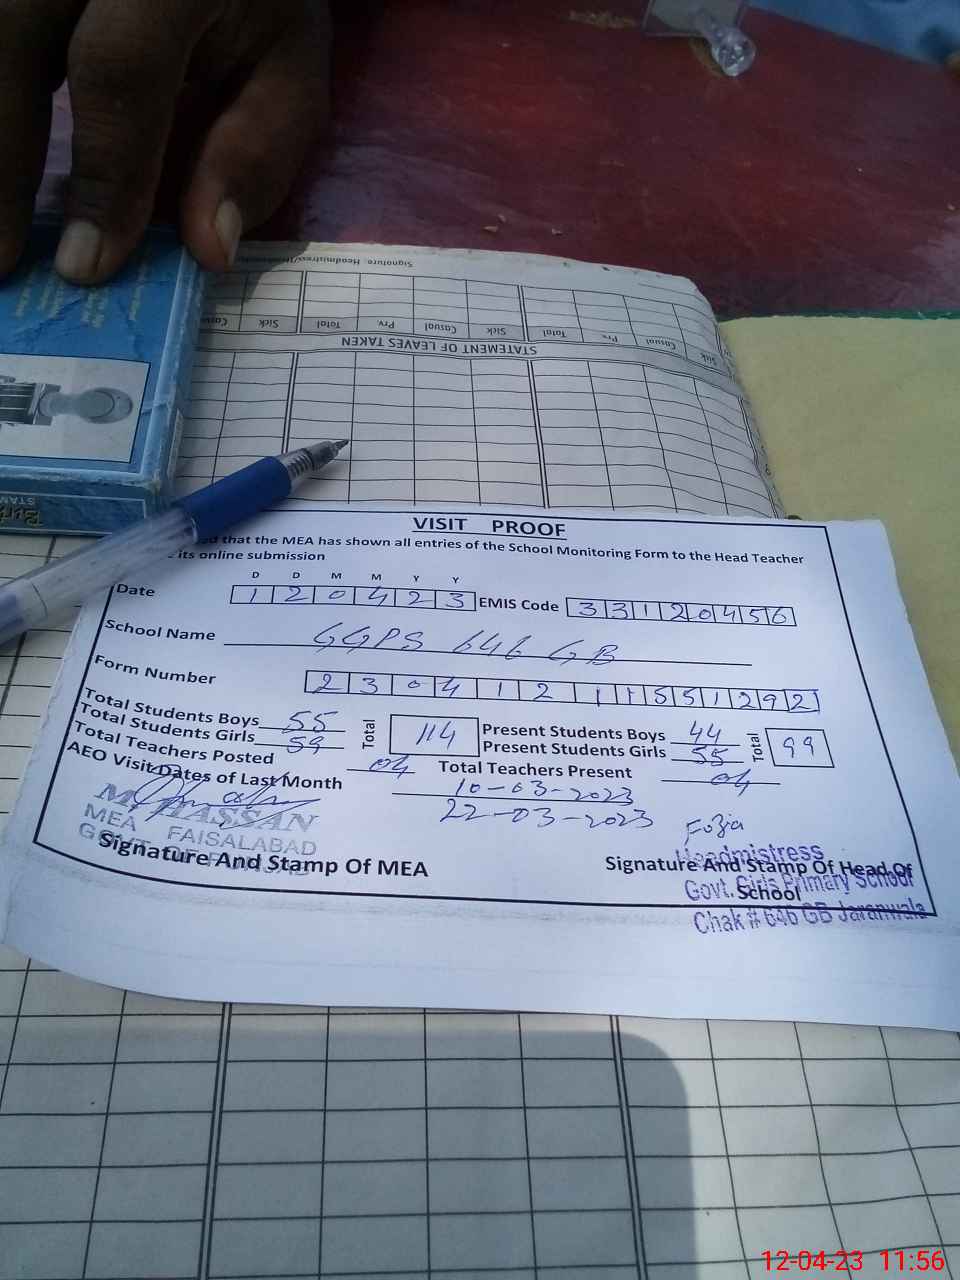 Signature, Headmistress/Headmaster
Sick Casual Prv. Total Sick Casual Prv. Total Sick
STATEMENT OF LEAVES TAKEN
VISIT PROOF
that the MEA has shown all entries of the School Monitoring Form to the Head Teacher
its online submission
D D M M Y Y
Date 1 2 0 4 2 3 EMIS Code 3 3 1 2 0 4 5 6
School Name GGPS 646 GB
Form Number 2 3 0 4 1 2 1 1 5 5 1 2 9 2
Total Students Boys 55 Total 114 Present Students Boys 44 Total 99
Total Students Girls 59 Present Students Girls 55
Total Teachers Posted 04 Total Teachers Present 04
AEO Visit Dates of Last Month 10-03-2023
22-03-2023
M. HASSAN
MEA FAISALABAD
GOVT. OF PUNJAB
Signature And Stamp Of MEA
Fozia
Headmistress
Signature And Stamp Of Head Of
School
Govt. Girls Primary School
Chak # 646 GB Jaranwala
12-04-23 11:56